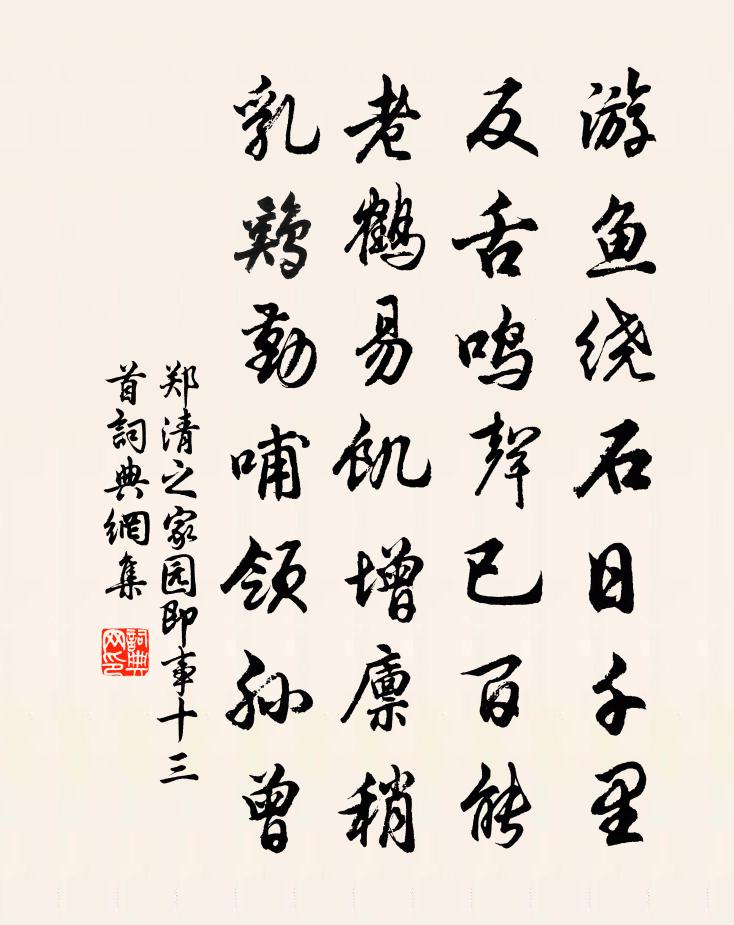 游鱼绕石日千里
反舌鸣声已百能
老鹤易饥增廪稍
乳鸡勤哺领孙曾
郑清之家园即事十三
首詞典網集
詞典
网印